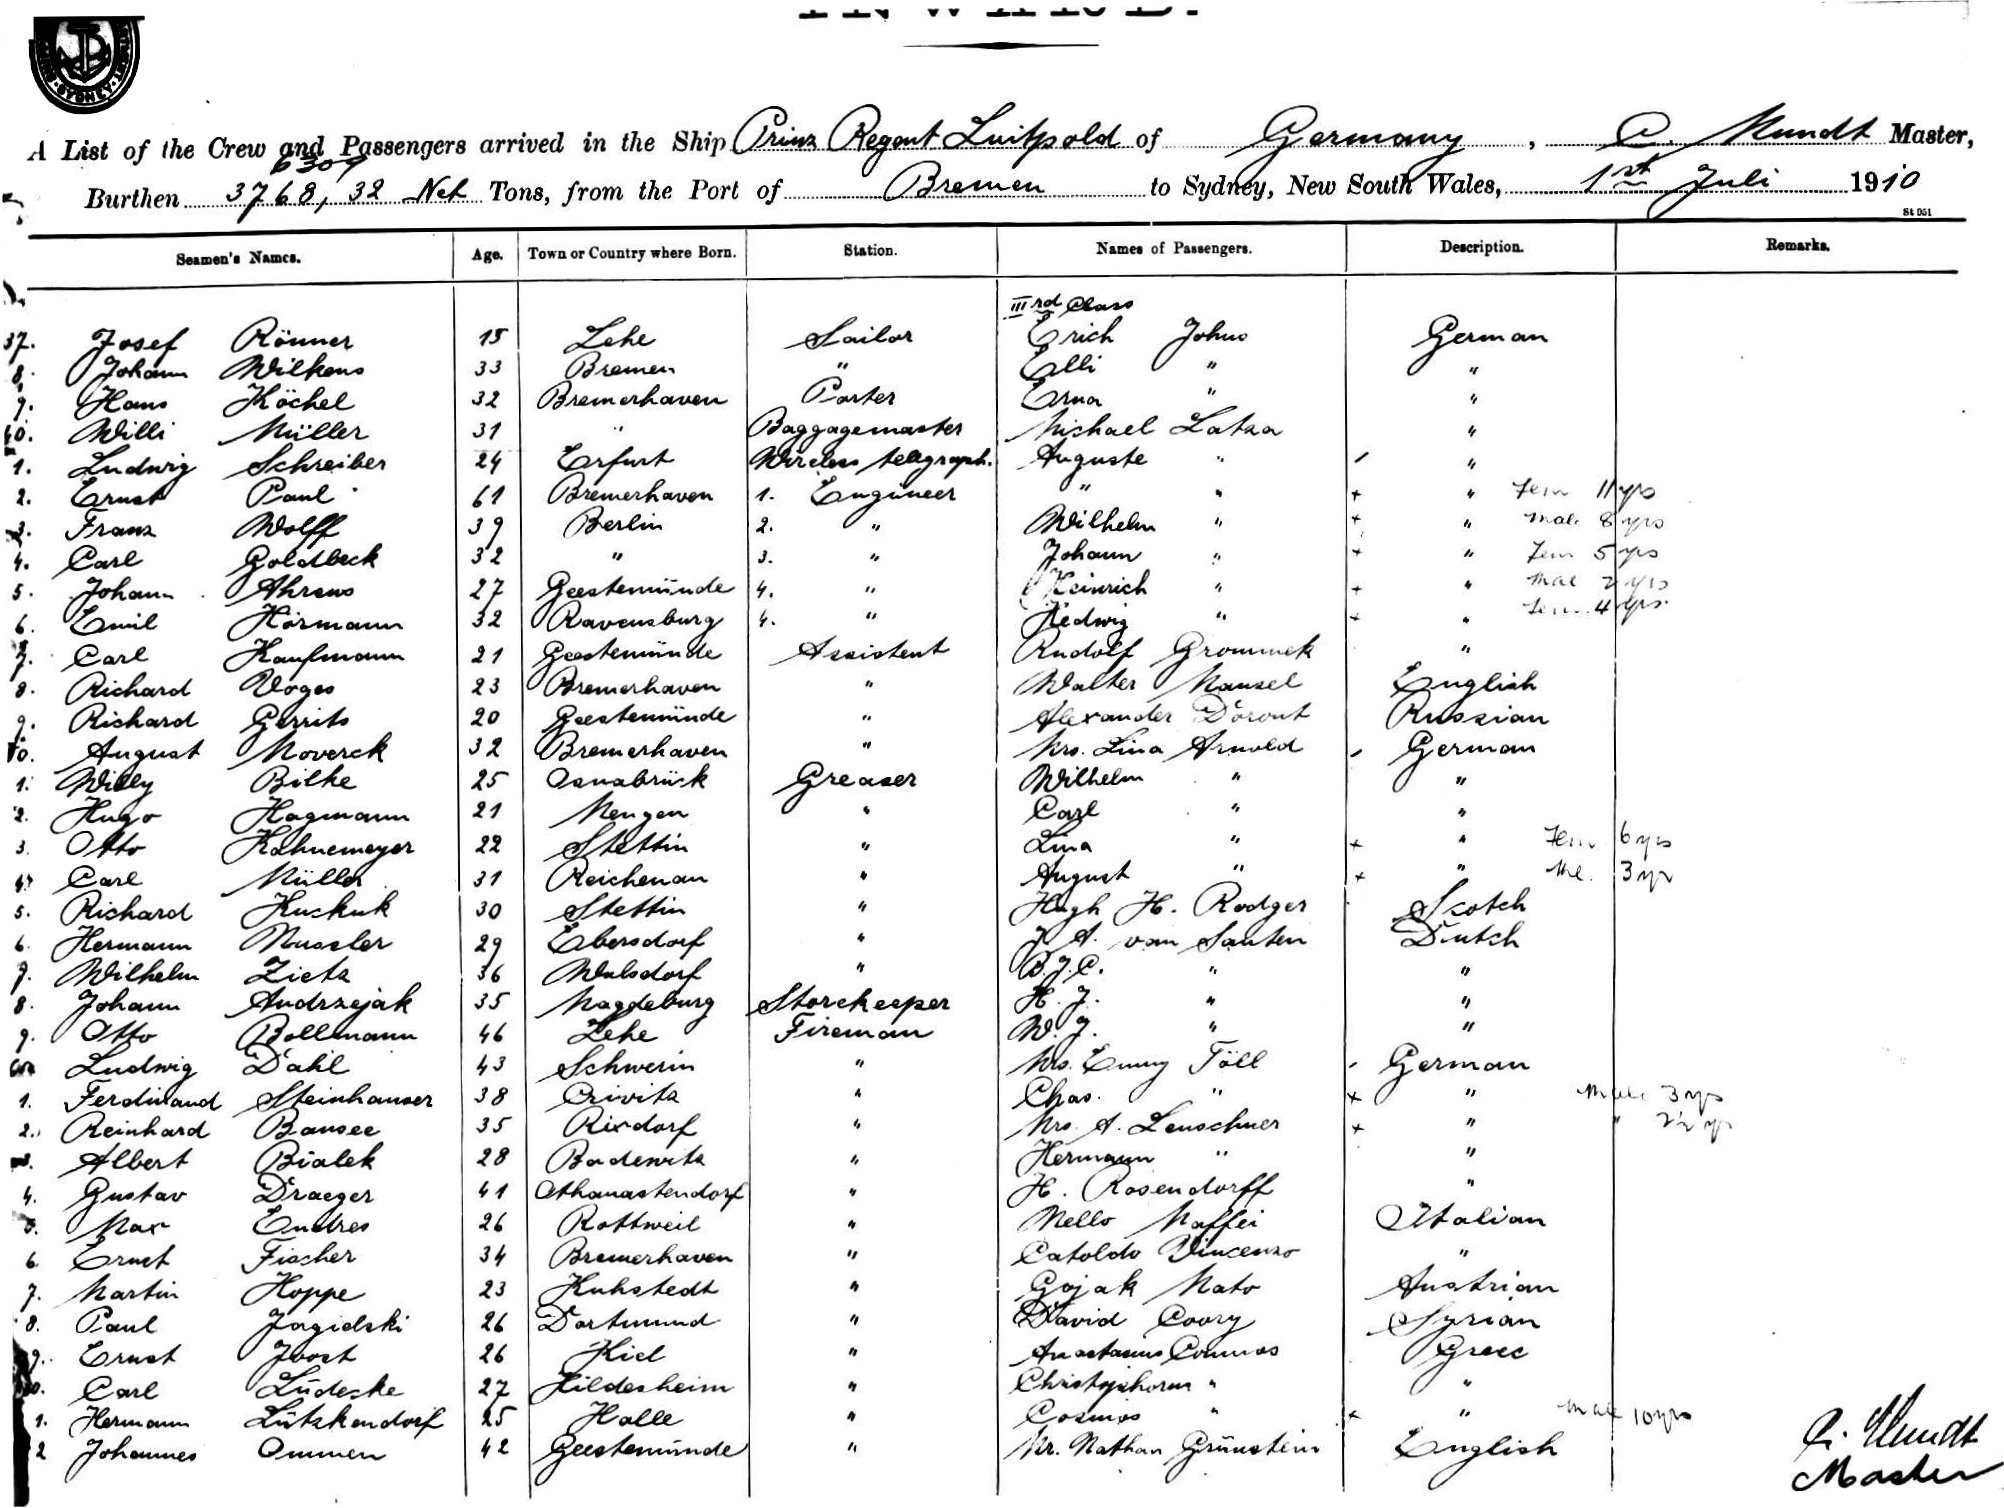 SYDNEY
A List of the Crew and Passengers arrived in the Ship Prinz Regent Luitpold of Germany, C. Mundt Master,
6309
Burthen 3768,32 Net Tons, from the Port of Bremen to Sydney, New South Wales, 1st Juli 1910
St 051
Seamen's Names. Age. Town or Country where Born. Station. Names of Passengers. Description. Remarks.
IIIrd Class
37. Josef Rönner 15 Lehe Sailor Erich Johns German
8. Johann Wilkens 33 Bremen " Elli " "
9. Hans Köchel 32 Bremerhaven Porter Erna " "
40. Willi Müller 31 " Baggagemaster Michael Latza "
1. Ludwig Schreiber 24 Erfurt Wireless telegraph. Auguste " "
2. Ernst Paul 61 Bremerhaven 1. Engineer " " + " Fem 11 yrs
3. Franz Wolff 39 Berlin 2. " Wilhelm " + " Male 8 yrs
4. Carl Goldbeck 32 " 3. " Johann " + " Fem 5 yrs
5. Johann Ahrens 27 Geestemünde 4. " Heinrich " + " Mal 2 yrs
6. Emil Hörmann 32 Ravensburg 4. " Hedwig " + " Fem. 4 yrs.
7. Carl Kaufmann 21 Geestemünde Assistent Rudolf Grommek "
8. Richard Voges 23 Bremerhaven " Walter Mansel English
9. Richard Gerrits 20 Geestemünde " Alexander Doront Russian
50. August Moverck 32 Bremerhaven " Mrs. Lina Arnold German
1. Willy Bilke 25 Osnabrück Greaser Wilhelm " "
2. Hugo Hagmann 21 Mengen " Carl " "
3. Otto Kahnemeyer 22 Stettin " Lina " + " Fem 6 yrs
4. Carl Müller 31 Reichenau " August " + " Me. 3 yr
5. Richard Kuckuk 30 Stettin " Hugh H. Rodger Scotch
6. Hermann Mussler 29 Ebersdorf " J. A. van Santen Dutch
7. Wilhelm Zietz 36 Wulsdorf " B.J.C. " "
8. Johann Andrzejak 35 Magdeburg Storekeeper H. J. " "
9. Otto Bollmann 46 Lehe Fireman W. J. " "
60. Ludwig Dahl 43 Schwerin " Mrs. Emmy Töll German
1. Ferdinand Steinhauser 38 Crivitz " Chas. " + " Male 3 yrs
2. Reinhard Bansee 35 Rixdorf " Mrs. A. Leuschner + " " 2½ yr
3. Albert Bialek 28 Badewitz " Hermann " "
4. Gustav Draeger 41 Athanastendorf " H. Rosendorff "
5. Max Endres 26 Rottweil " Nello Maffei Italian
6. Ernst Fischer 34 Bremerhaven " Catoldo Vincenzo "
7. Martin Hoppe 23 Kuhstedt " Gojak Mato Austrian
8. Paul Jagielski 26 Dortmund " David Coory Syrian
9. Ernst Joost 26 Kiel " Anastasius Comnos Greec
70. Carl Lüdeske 27 Hildesheim " Christophorus " "
1. Hermann Lützkendorf 25 Halle " Cosmos " + " Male 10 yrs
2 Johannes Ommen 42 Geestemünde " Mr. Nathan Grünstein English
C. Mundt
Master